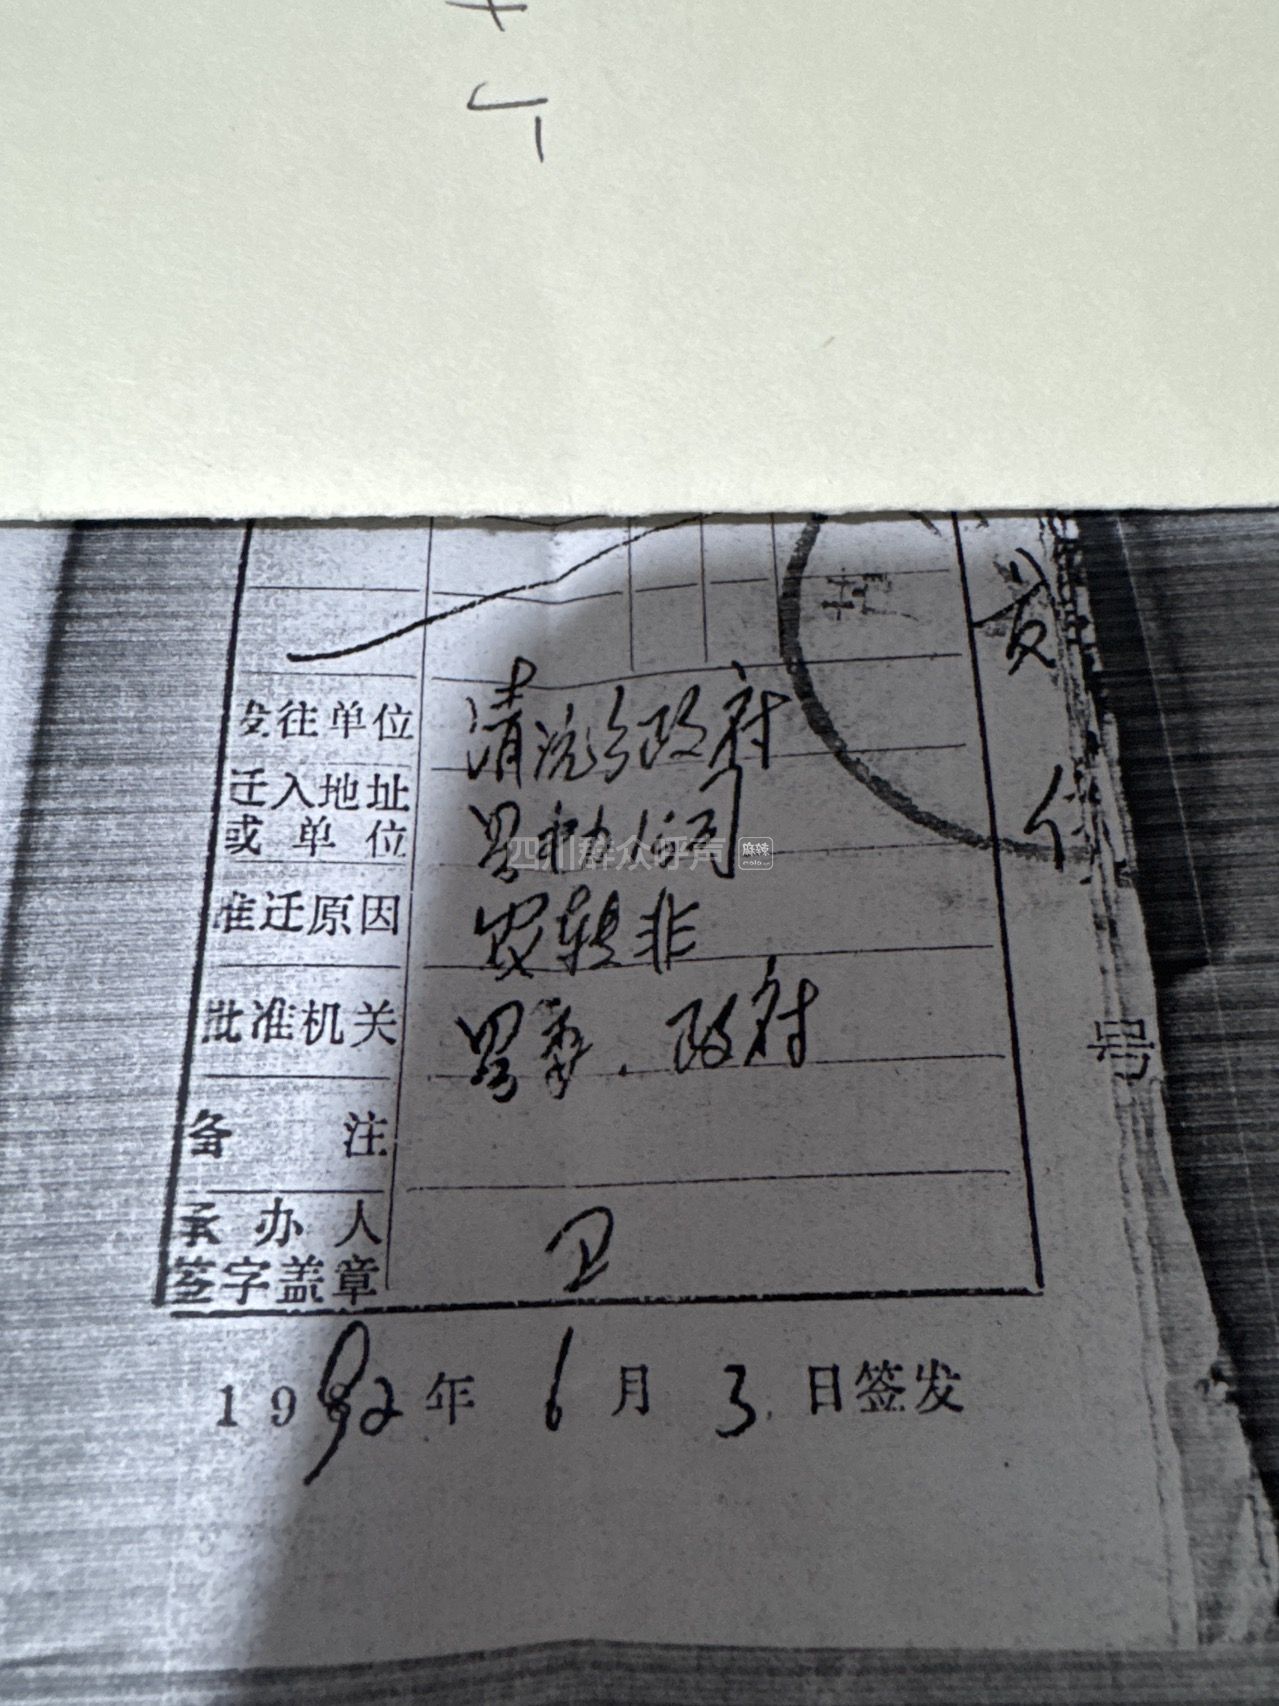 发往单位 清流乡政府
迁入地址
或单位
准迁原因 农转非
批准机关 县委.政府
备注
承办人
签字盖章 卫
1992年6月3日签发
号
四川群众呼声 麻辣